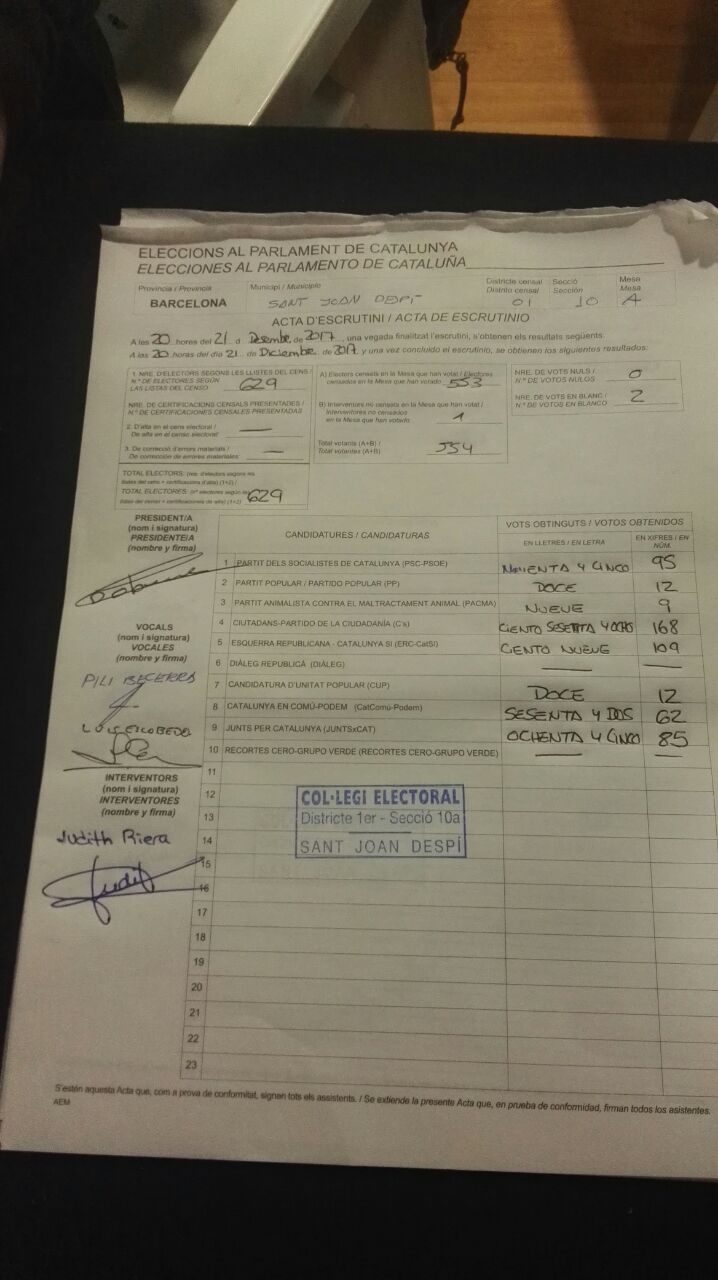 ELECCIONS AL PARLAMENT DE CATALUNYA
ELECCIONES AL PARLAMENTO DE CATALUÑA
Província / Provincia Municipi / Municipio Districte censal Secció Mesa
Distrito censal Sección Mesa
BARCELONA SANT JOAN DESPÍ 01 10 A
ACTA D'ESCRUTINI / ACTA DE ESCRUTINIO
A les 20 hores del 21 d Desembre de 2017, una vegada finalitzat l'escrutini, s'obtenen els resultats següents:
A las 20 horas del día 21 de Diciembre de 2017, y una vez concluido el escrutinio, se obtienen los siguientes resultados:
1. NRE. D'ELECTORS SEGONS LES LLISTES DEL CENS /
N.º DE ELECTORES SEGÚN
LAS LISTAS DEL CENSO 629
NRE. DE CERTIFICACIONS CENSALS PRESENTADES /
N.º DE CERTIFICACIONES CENSALES PRESENTADAS
2. D'alta en el cens electoral /
De alta en el censo electoral —
3. De correcció d'errors materials /
De corrección de errores materiales —
TOTAL ELECTORS: (nre. d'electors segons les
llistes del cens + certificacions d'alta) (1+2) /
TOTAL ELECTORES: (nº electores según las
listas del censo + certificaciones de alta) (1+2) 629
A) Electors censats en la Mesa que han votat / Electores
censados en la Mesa que han votado 553
B) Interventors no censats en la Mesa que han votat /
Interventores no censados
en la Mesa que han votado 1
Total votants (A+B) /
Total votantes (A+B) 554
NRE. DE VOTS NULS /
N.º DE VOTOS NULOS 0
NRE. DE VOTS EN BLANC /
N.º DE VOTOS EN BLANCO 2
PRESIDENT/A
(nom i signatura)
PRESIDENTE/A
(nombre y firma)
VOCALS
(nom i signatura)
VOCALES
(nombre y firma)
PILI BECERRA
LUIS ESCOBEDO
INTERVENTORS
(nom i signatura)
INTERVENTORES
(nombre y firma)
Judith Riera
Judit
CANDIDATURES / CANDIDATURAS VOTS OBTINGUTS / VOTOS OBTENIDOS
EN LLETRES / EN LETRA EN XIFRES / EN NÚM.
1 PARTIT DELS SOCIALISTES DE CATALUNYA (PSC-PSOE) NOVENTA Y CINCO 95
2 PARTIT POPULAR / PARTIDO POPULAR (PP) DOCE 12
3 PARTIT ANIMALISTA CONTRA EL MALTRACTAMENT ANIMAL (PACMA) NUEVE 9
4 CIUTADANS-PARTIDO DE LA CIUDADANÍA (C's) CIENTO SESENTA Y OCHO 168
5 ESQUERRA REPUBLICANA - CATALUNYA SÍ (ERC-CatSí) CIENTO NUEVE 109
6 DIÀLEG REPUBLICÀ (DIÀLEG) — —
7 CANDIDATURA D'UNITAT POPULAR (CUP) DOCE 12
8 CATALUNYA EN COMÚ-PODEM (CatComú-Podem) SESENTA Y DOS 62
9 JUNTS PER CATALUNYA (JUNTSxCAT) OCHENTA Y CINCO 85
10 RECORTES CERO-GRUPO VERDE (RECORTES CERO-GRUPO VERDE) — —
11
12
13
14
15
16
17
18
19
20
21
22
23
COL·LEGI ELECTORAL
Districte 1er - Secció 10a
SANT JOAN DESPÍ
S'estén aquesta Acta que, com a prova de conformitat, signen tots els assistents. / Se extiende la presente Acta que, en prueba de conformidad, firman todos los asistentes.
AEM